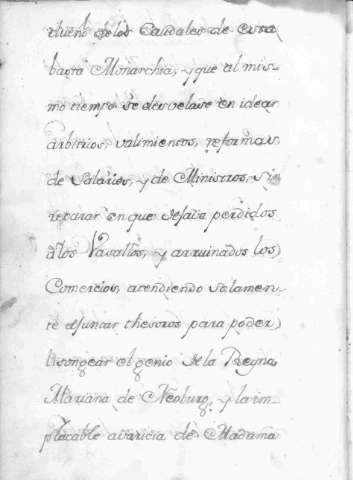 dueño de los Caudales de esta
basta Monarchia, y que al mis-
mo tiempo se desvelase en idear
arbitrios, valimientos, reformas
de Salarios, y de Ministros, sin
reparar en que dejaũa perdidos
a los Vasallos, y arruinados los
Comercios, atendiendo solamen-
te a juntar thesoros para poder
lisongear el genio de la Reyna
Mariana de Neoburg, y la im-
placable avaricia de Madama